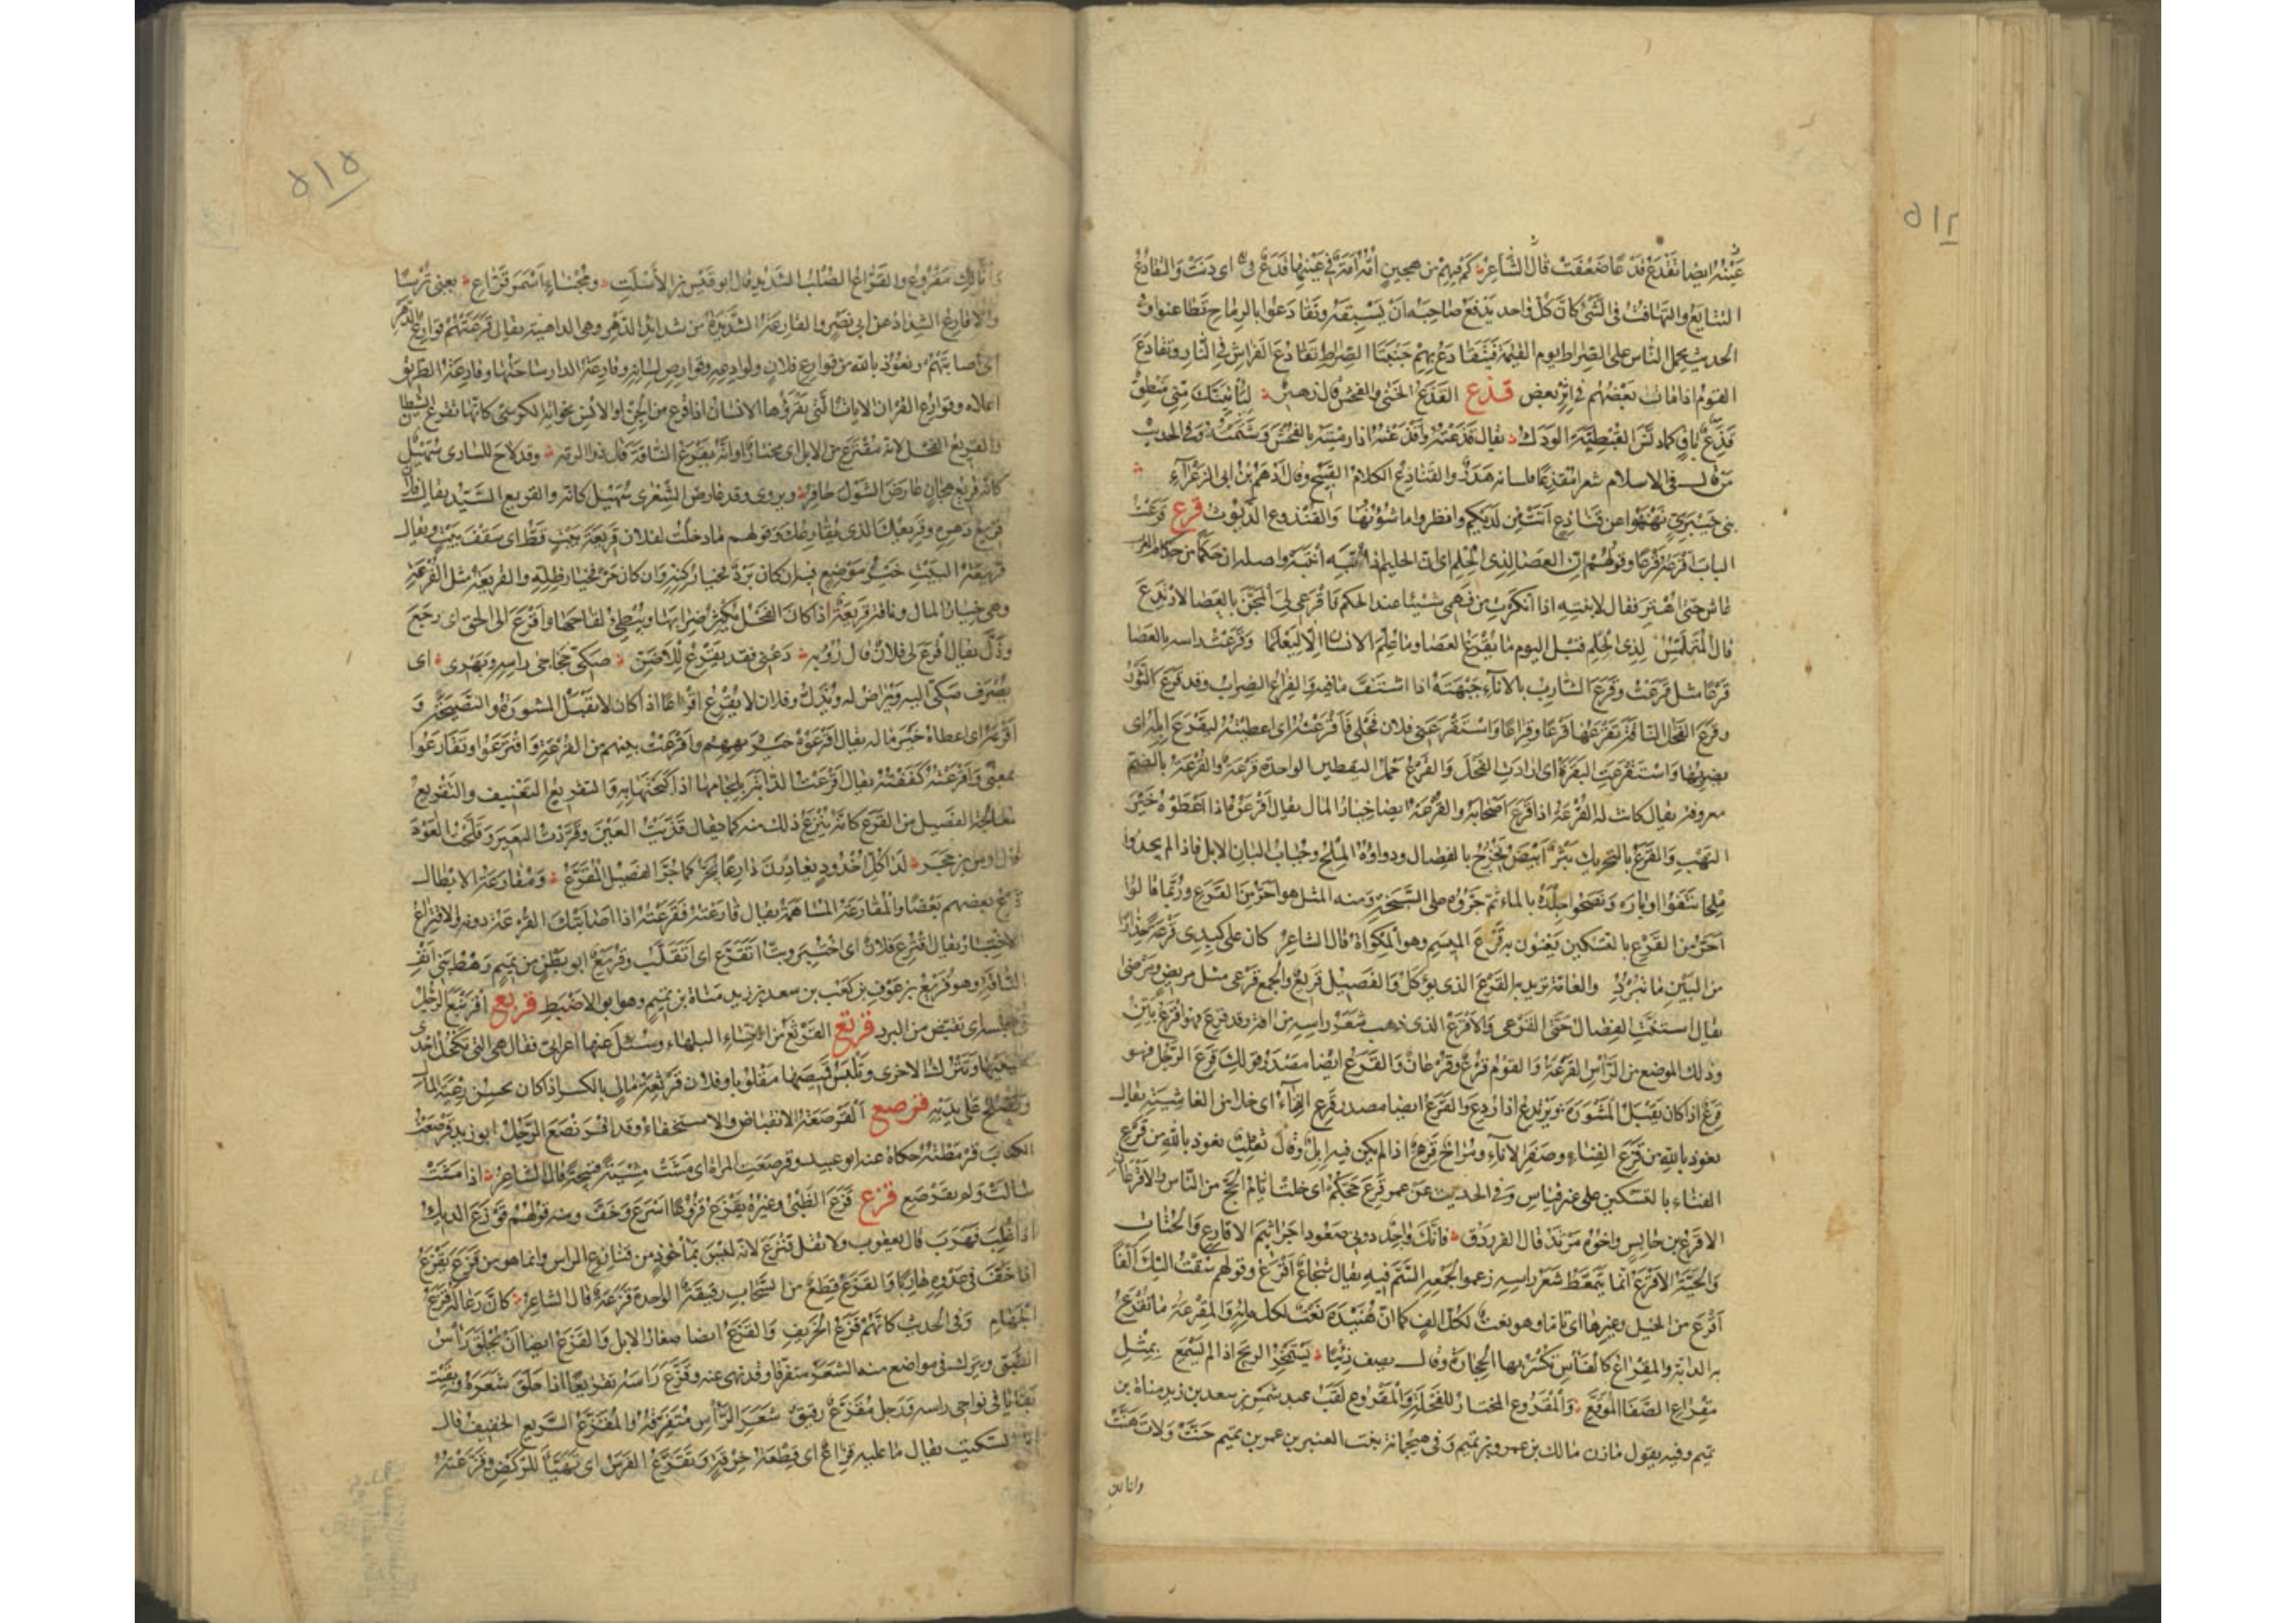 عينه ايضا تقدع قدعا ضعفت قال الشاعر كم فيهم من هجين امه امة في عينها قدع في اي دنت والتقادع
التتابع والتهافت في الشئ كان كل واحد يدفع صاحبه ان يسبقه وتقادعوا بالرماح تطاعنوا وفي
الحديث يحمل الناس على الصراط يوم القيمة فيتقادع بهم جنبتا الصراط تقادع الفراش في النار وتقادع
القوم اذا مات بعضهم في اثر بعض قذع القذع الخنى والفحش قال زهير ليأتينك مني منطق
قذع باق كما دنس القبطية الودك يقال قذعته واقذعته اذا رميته بالفحش وشتمته وفي الحديث
من قال في الاسلام شعرا مقذعا فلسانه هدر والقناذع الكلام القبيح وقال ادهم بن ابي الزعراء
بني خيبري نهنهوا عن قناذع اتت من لديكم وانظروا ما شؤنها والقنذوع الديوث قرع قرعت
الباب اقرعه قرعا وقولهم ان العصا لذي الحلم اي ان الحليم اذا نبه انتبه واصله ان حكما من حكام العرب
عاش حتى اهتر فقال لابنته اذا انكرت من فهمي شيئا عند الحكم فاقرعي لي المجن بالعصا لارتدع
قال المتلمس لذي الحلم قبل اليوم ما يقرع العصا وما علم الانسان الا ليعلما وقرعت راسه بالعصا
قرعا مثل قرعت وقرع الشارب بالاناء جبهته اذا اشتف ما فيه والقراع الضراب وقد قرع الثور
وقرع الفحل الناقة يقرعها قرعا وقراعا واستقرعني فلان فحلي فاقرعته اي اعطيته ليقرع ابله اي
يضربها واستقرعت البقرة اي ارادت الفحل والقرع حمل اليقطين الواحدة قرعة والقرعة بالضم
معروفة يقال كانت له القرعة اذا قرع اصحابه والقرعة ايضا خيار المال يقال اقرعوه اذا اعطوه خير
النهب والقرع بالتحريك بثر ابيض يخرج بالفصال ودواؤه الملح وجباب البان الابل فاذا لم يجدوا
ملحا نتفوا اوباره ونضحوا جلده بالماء ثم جروه على السبخة ومنه المثل هو احر من القرع وربما قالوا
احر من القرع بالتسكين يعنون به قرع الميسم وهو المكواة قال الشاعر كان على كبدي قرعة حذارا
من البين ما تبرد والعامة تريد به القرع الذي يؤكل والفصيل قريع والجمع قرعى مثل مريض ومرضى
يقال استنت الفصال حتى القرعى والاقرع الذي ذهب شعر راسه من افة وقد قرع فهو اقرع بين
وذلك الموضع من الراس القرعة والقوم قرع وقرعان والقرع ايضا مصدر قولك قرع الرجل فهو
قرع اذا كان يقبل المشورة ويرتدع اذا ردع والقرع ايضا مصدر قرع الفناء اي خلا من الغاشية يقال
نعوذ بالله من قرع الفناء وصفر الاناء ومراح قرع اذا لم يكن فيه ابل وقال ثعلب نعوذ بالله من قرع
الفناء بالتسكين على غير قياس وفي الحديث عن عمر قرع حجكم اي خلت ايام الحج من الناس والاقرعان
الاقرع بن حابس واخوه مرثد قال الفرزدق فانك واجد دوني صعودا جراثيم الاقارع والحتات
والحية الاقرع انما يتمعط شعر راسه زعموا لجمعه السم فيه يقال شجاع اقرع وقولهم سقت اليك الفا
اقرع من الخيل وغيرها اي تاما وهو نعت لكل الف كما ان هنيدة نعت لكل ماية والمقرعة ما تقرع
به الدابة والمقراع كالفاس تكسر بها الحجارة وقال يصف ذئبا يستمخر الريح اذا لم يسمع بمثل
مقراع الصفا الموقع والمقروع المختار للفحلة والمقروع لقب عبد شمس بن سعد بن زيد مناة بن
تميم وفيه يقول مازن مالك بن عمرو بن تميم وفي هيجمانة بنت العنبر بن عمرو بن تميم حنت ولات هنت
وانالك
مقروع والقراع الصلب الشديد قال ابو قيس بن الاسلت ومجناء اسمر قراع يعني ترسا
والاقارع الشداد عن ابي نصر والقارعة الشديدة من شدايد الدهر وهي الداهية يقال قرعتهم قوارع الدهر
اي اصابتهم ونعوذ بالله من قوارع فلان ولواذعه وقوارص لسانه وقارعة الدار ساحتها وقارعة الطريق
اعلاه وقوارع القران الايات التي يقرؤها الانسان اذا فزع من الجن او الانس نحو اية الكرسي كانها تقرع الشيطان
والقريع الفحل لانه مقترع من الابل اي مختار او انه يقرع الناقة قال ذو الرمه وقد لاح للساري سهيل
كانه قريع هجان عارض الشول جافر ويروى وقد عارض الشعرى سهيل كانه والقريع السيد يقال فلان
قريع دهره وقريعك الذي يقارعك وقولهم ما دخلت لفلان قريعة بيت قط اي سقف بيت ويقال
قريعة البيت خير موضع فيه ان كان برد فخيار كنه وان كان حر فخيار ظله والقريعة مثل القرعة
وهي خيار المال وناقة قريعة اذا كان الفحل يكثر ضرابها ويبطئ لقاحها واقرع الى الحق اي رجع
وذل يقال اقرع لي فلان قال رؤبه دعني فقد يقرع للاضز صكي حجاجي راسه وبهزي اي
يصرف صكي اليه ويراض له ويذل وفلان لا يقرع اقراعا اذا كان لا يقبل المشورة والنصيحة و
اقرعه اي اعطاه خير ماله يقال اقرعوه خير نهبهم واقرعت بينهم من القرعة واقترعوا وتقارعوا
بمعنى واقرعته كففته يقال اقرعت الدابة بلجامها اذا كبحتها به والتقريع التعنيف والتقريع
معالجة الفصيل من القرع كانه ينزع ذلك منه كما يقال قذيت العين وقردت البعير وقلحت العود
قال اوس بن حجر لدى كل اخدود يغادرن دارعا يجر كما جر الفصيل المقرع ومقارعة الابطال
قرع بعضهم بعضا والمقارعة المساهمة يقال قارعته فقرعته اذا اصابتك القرعة دونه والاقتراع
الاختيار يقال اقترع فلان اي اختير وبت اتقرع اي اتقلب وقريع ابو بطن من تميم رهط بني انف
الناقة وهو قريع بن عوف بن كعب بن سعد بن زيد مناة بن تميم وهو ابو الاضبط قربع اقرنبع الرجل
في مجلسه اي تقبض من البرد قرثع القرثع من النساء البلهاء وسئل عنها اعرابي فقال هي التي تكحل احدى
عينيها وتترك الاخرى وتلبس قميصها مقلوبا وفلان قرثعة مال بالكسر اذا كان يحسن رعية المال
ويصلح على يديه قرصع القرصعة الانقباض والاستخفاء وقد اقرنصع الرجل ابو زيد قرصعت
الكتاب قرمطته حكاه عنه ابو عبيد وقرصعت المراة اي مشت مشية قبيحة قال الشاعر اذا مشت
سالت ولم تقرصع قزع قزع الظبي وغيره يقزع قزوعا اسرع وخف ومنه قولهم قوزع الديك
اذا غلب فهرب قال يعقوب ولا تقل قنزع لانه ليس بماخوذ من قنازع الراس وانما هو من قزع يقزع
اذا خف في عدوه هاربا والقزع قطع من السحاب رقيقة الواحدة قزعة قال الشاعر كان رعاله قزع
الجهام وفي الحديث كانهم قزع الخريف والقزع ايضا صغار الابل والقزع ايضا ان يحلق راس
الصبي ويترك في مواضع منه الشعر متفرقا وقد نهي عنه وقزع راسه تقزيعا اذا حلق شعره وبقيت
بقايا في نواحي راسه ورجل مقزع رقيق شعر الراس متفرقه والمقزع السريع الخفيف قال
ابن السكيت يقال ما عليه قزاع اي قطعة خرقة وتقزع الفرس اي تهيأ للركض وقزعته